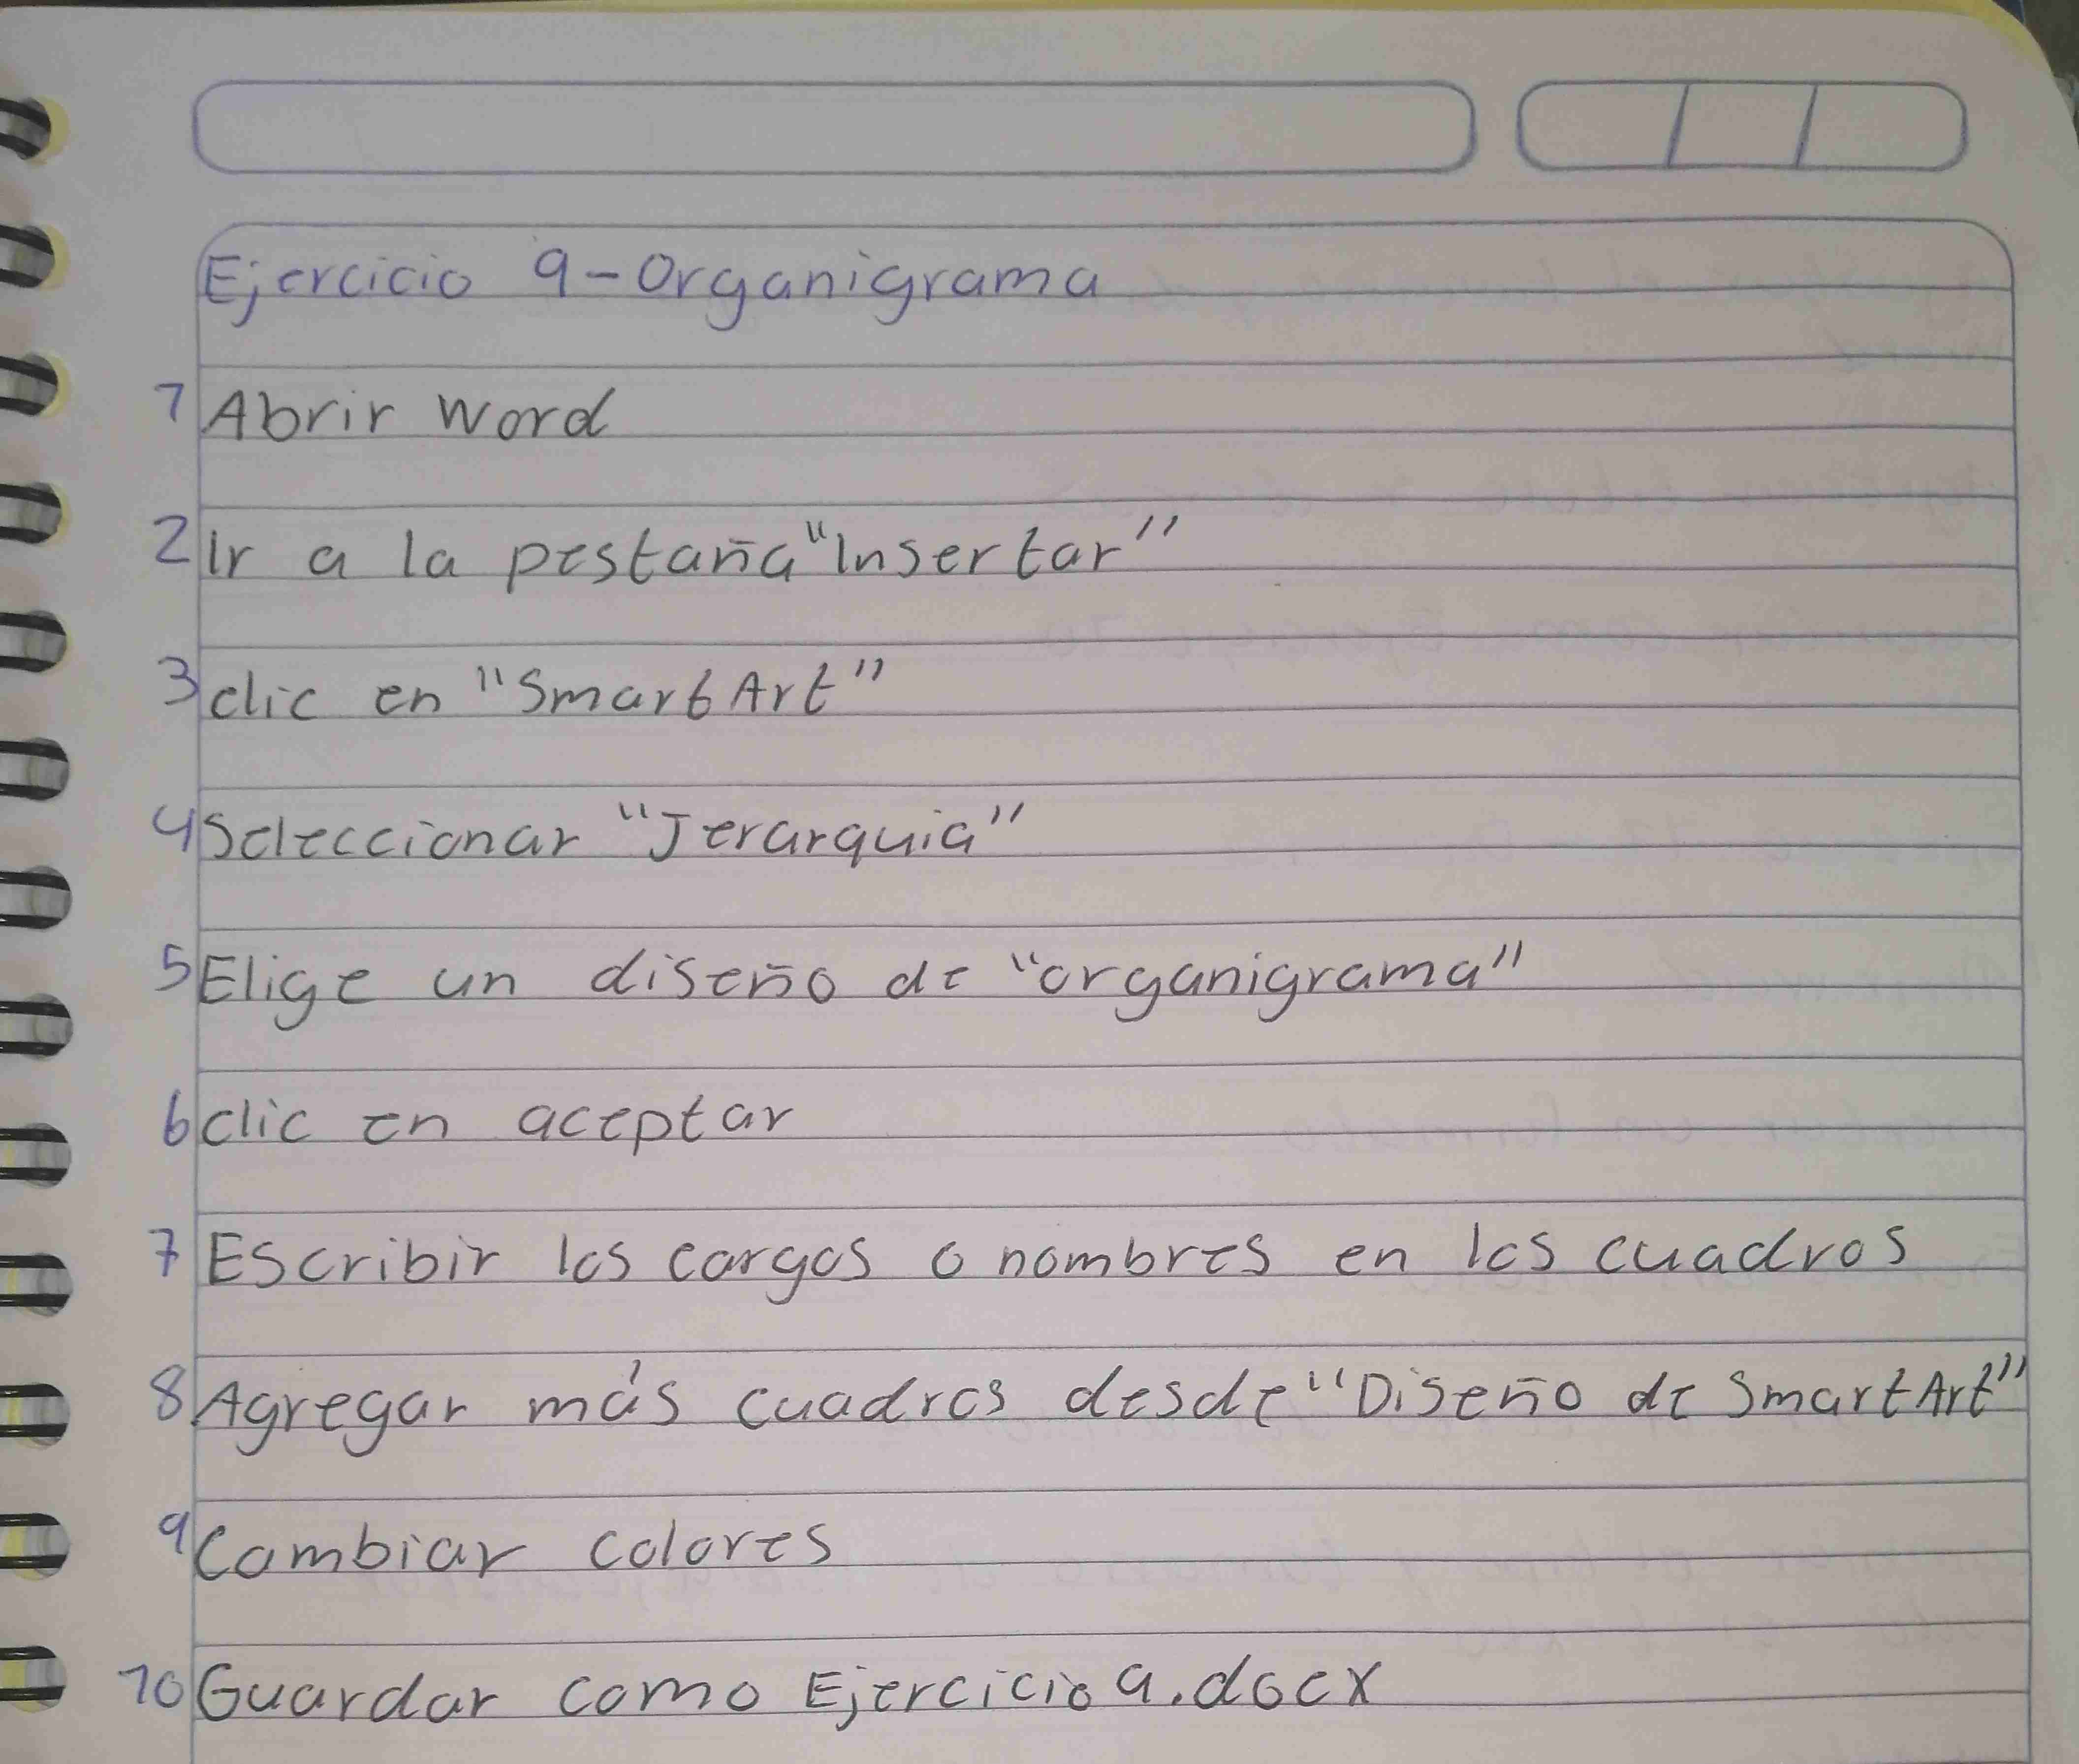 Ejercicio 9-Organigrama
1 Abrir Word
2 Ir a la pestaña "Insertar"
3 clic en "SmartArt"
4 Seleccionar "Jerarquia"
5 Elige un diseño de "organigrama"
6 clic en aceptar
7 Escribir los cargos o nombres en los cuadros
8 Agregar más cuadros desde "Diseño de SmartArt"
9 Cambiar colores
10 Guardar como Ejercicio 9.docx